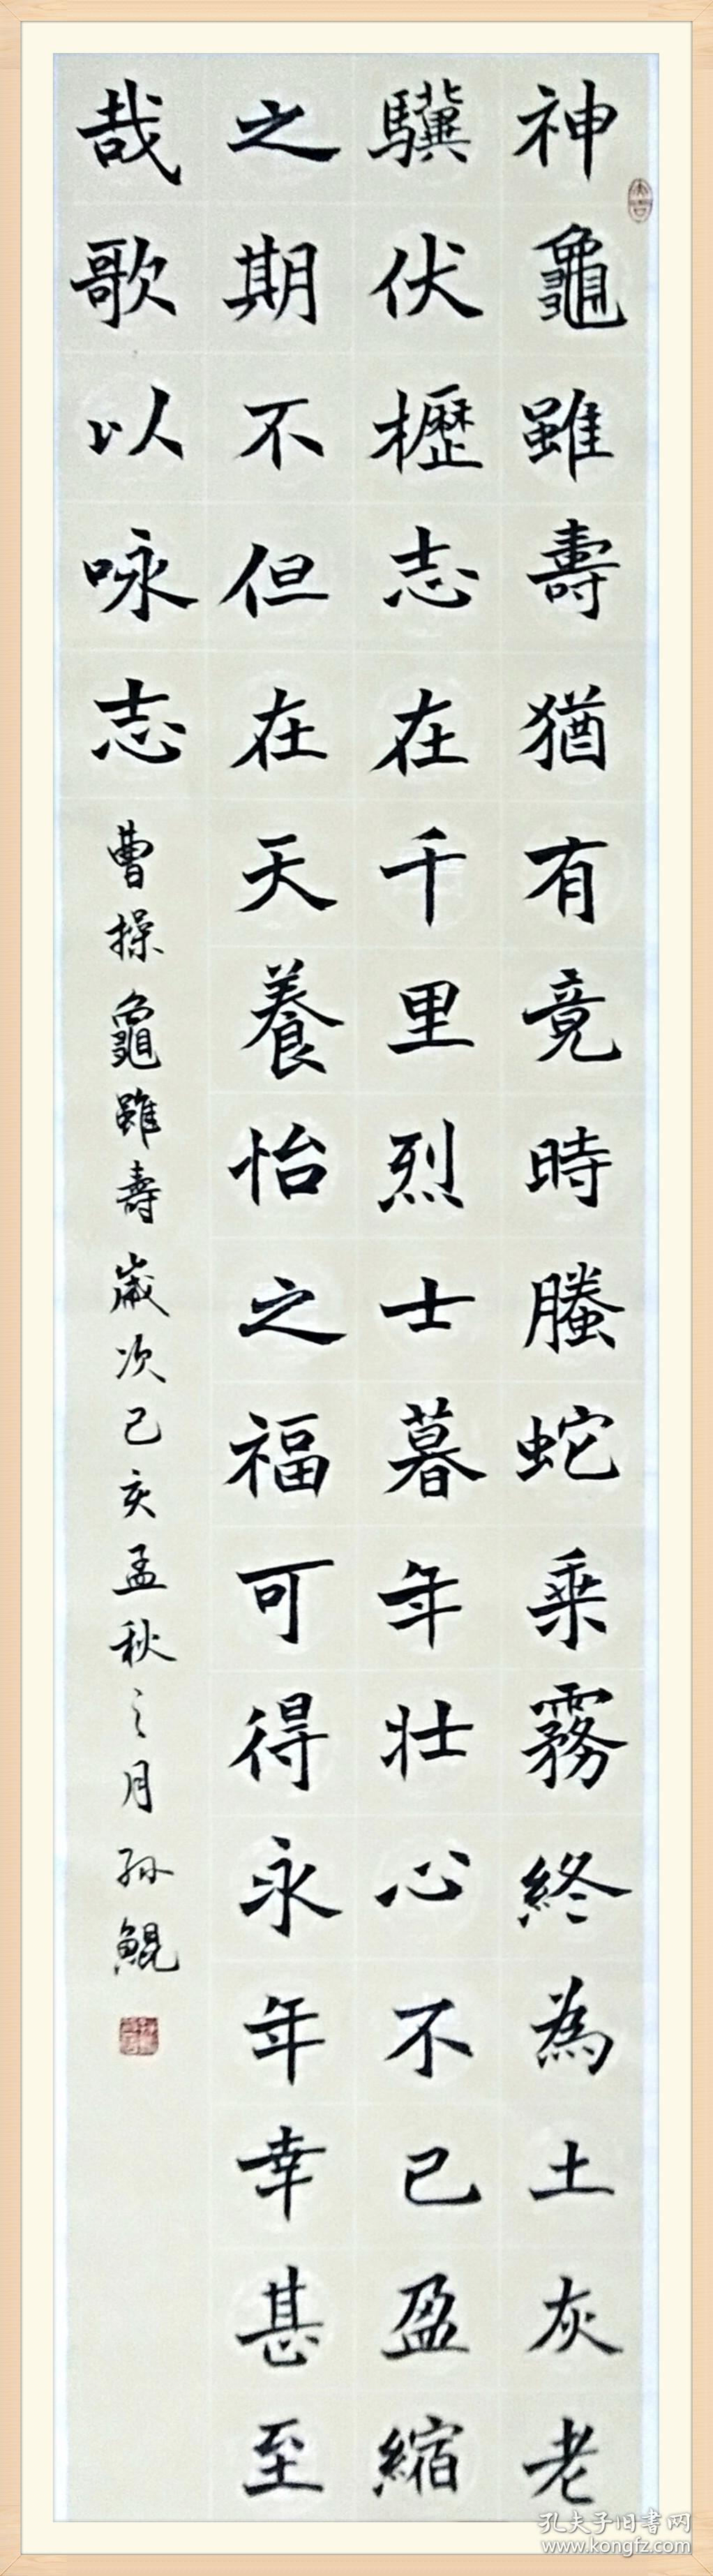 神龜雖壽猶有竟時螣蛇乘霧終為土灰老
驥伏櫪志在千里烈士暮年壯心不已盈縮
之期不但在天養怡之福可得永年幸甚至
哉歌以咏志
曹操龜雖壽歲次己亥孟秋之月孙鲲
孔夫子旧书网
www.kongfz.com